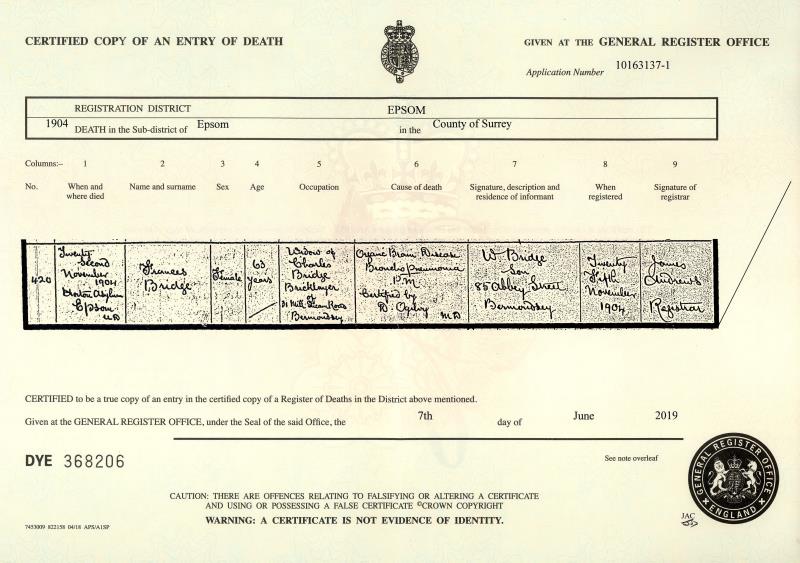 CERTIFIED COPY OF AN ENTRY OF DEATH
GIVEN AT THE GENERAL REGISTER OFFICE
Application Number 10163137-1
REGISTRATION DISTRICT EPSOM
1904 DEATH in the Sub-district of Epsom in the County of Surrey
Columns:- 1 2 3 4 5 6 7 8 9
No. When and where died Name and surname Sex Age Occupation Cause of death Signature, description and residence of informant When registered Signature of registrar
420
Twenty
Second
November
1904
Horton Asylum
Epsom
UD
Frances
Bridge
Female
63
years
Widow of
Charles
Bridge
Bricklayer
of
Bermondsey
Organic Brain Disease
Broncho Pneumonia
P.M.
Certified by
D. Ogilvy MD
W Bridge
Son
85 Abbey Street
Bermondsey
Twenty
Fifth
November
1904
James
Andrews
Registrar
CERTIFIED to be a true copy of an entry in the certified copy of a Register of Deaths in the District above mentioned.
Given at the GENERAL REGISTER OFFICE, under the Seal of the said Office, the 7th day of June 2019
DYE 368206
See note overleaf
GENERAL REGISTER OFFICE
ENGLAND
CAUTION: THERE ARE OFFENCES RELATING TO FALSIFYING OR ALTERING A CERTIFICATE
AND USING OR POSSESSING A FALSE CERTIFICATE ©CROWN COPYRIGHT
WARNING: A CERTIFICATE IS NOT EVIDENCE OF IDENTITY.
JAC
7453009 822158 04/18 APS/A1SP